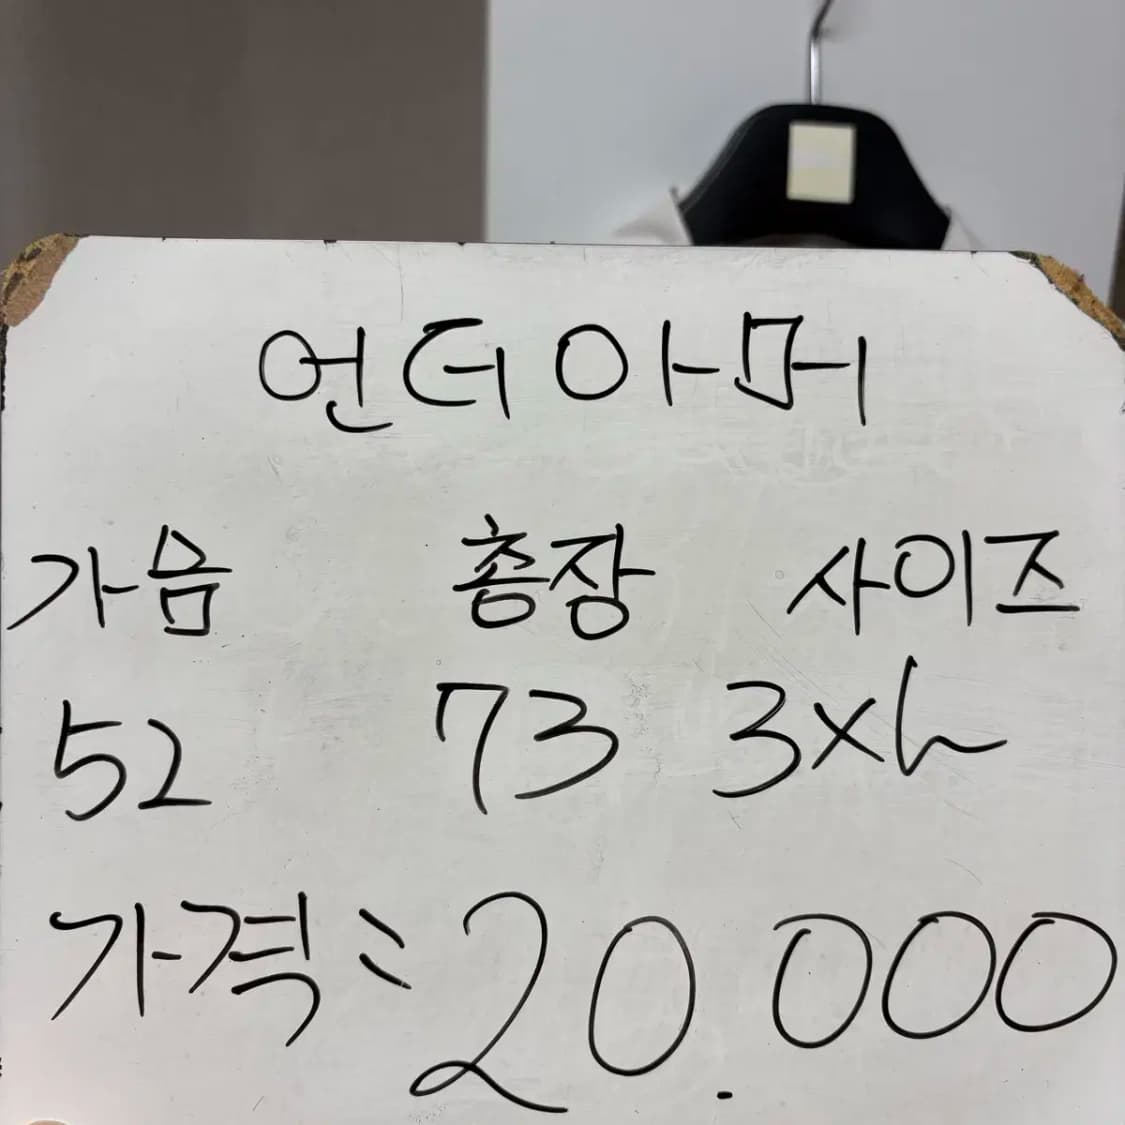 언더아머
가슴 총장 사이즈
52 73 3XL
가격: 20.000